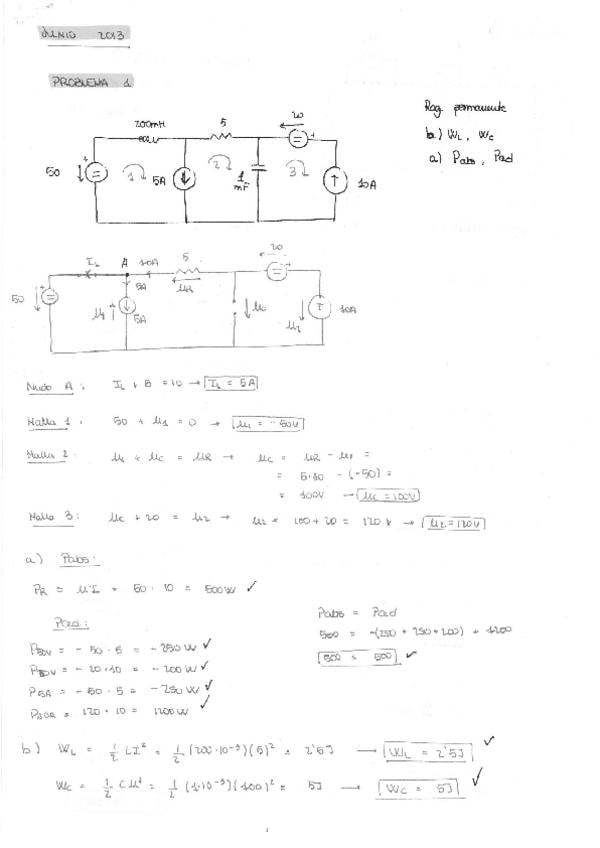 JUNIO 2013
PROBLEMA 1
Reg. permanente
b) WL, WC
a) Pabs, Pced
200mH
5
20
50
1
5A
2
1 mF
3
10A
IL
A
10A
5
20
5A
UR
50
U1
5A
UC
U2
10A
Nudo A: IL + 5 = 10 → IL = 5A
Malla 1: 50 + U1 = 0 → U1 = -50V
Malla 2: U1 + UC = UR → UC = UR - U1 =
= 5·10 - (-50) =
= 100V → UC = 100V
Malla 3: UC + 20 = U2 → U2 = 100 + 20 = 120 V → U2 = 120V
a) Pabs:
PR = U·I = 50 · 10 = 500W ✓
Pced:
P50V = - 50 · 5 = - 250 W ✓
P20V = - 20·10 = - 200 W ✓
P5A = - 50 · 5 = - 250 W ✓
P10A = 120 · 10 = 1200 W ✓
Pabs = Pced
500 = -(250 + 250 + 200) + 1200
500 = 500 ✓
b) WL = 1/2 LI² = 1/2 (200·10⁻³)(5)² = 2'5J → WL = 2'5J ✓
WC = 1/2 CU² = 1/2 (1·10⁻³)(100)² = 5J → WC = 5J ✓